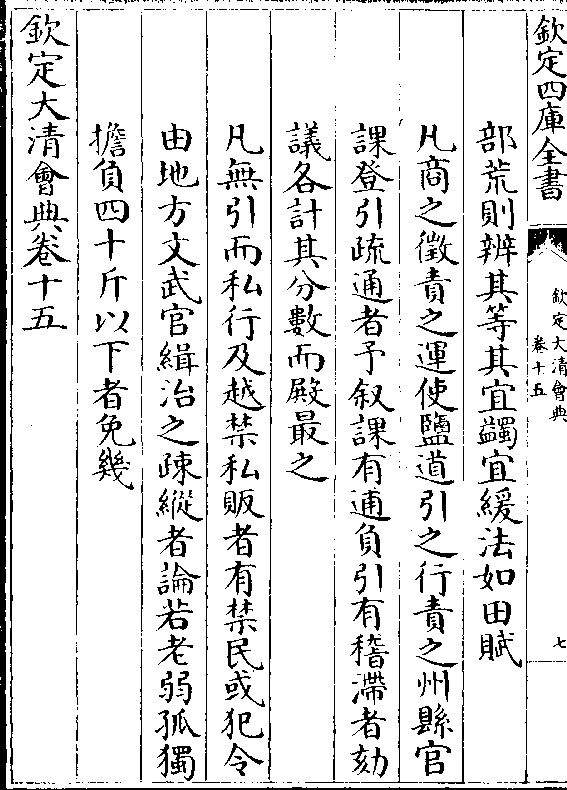 欽定四庫全書
欽定大清會典
卷十五
七
部荒則辨其等其宜蠲宜緩法如田賦
凡商之徵責之運使鹽道引之行責之州縣官
課登引疏通者予叙課有逋負引有稽滯者劾
議各計其分數而殿最之
凡無引而私行及越禁私販者有禁民或犯令
由地方文武官緝治之疎縱者論若老弱孤獨
擔負四十斤以下者免幾
欽定大清會典卷十五